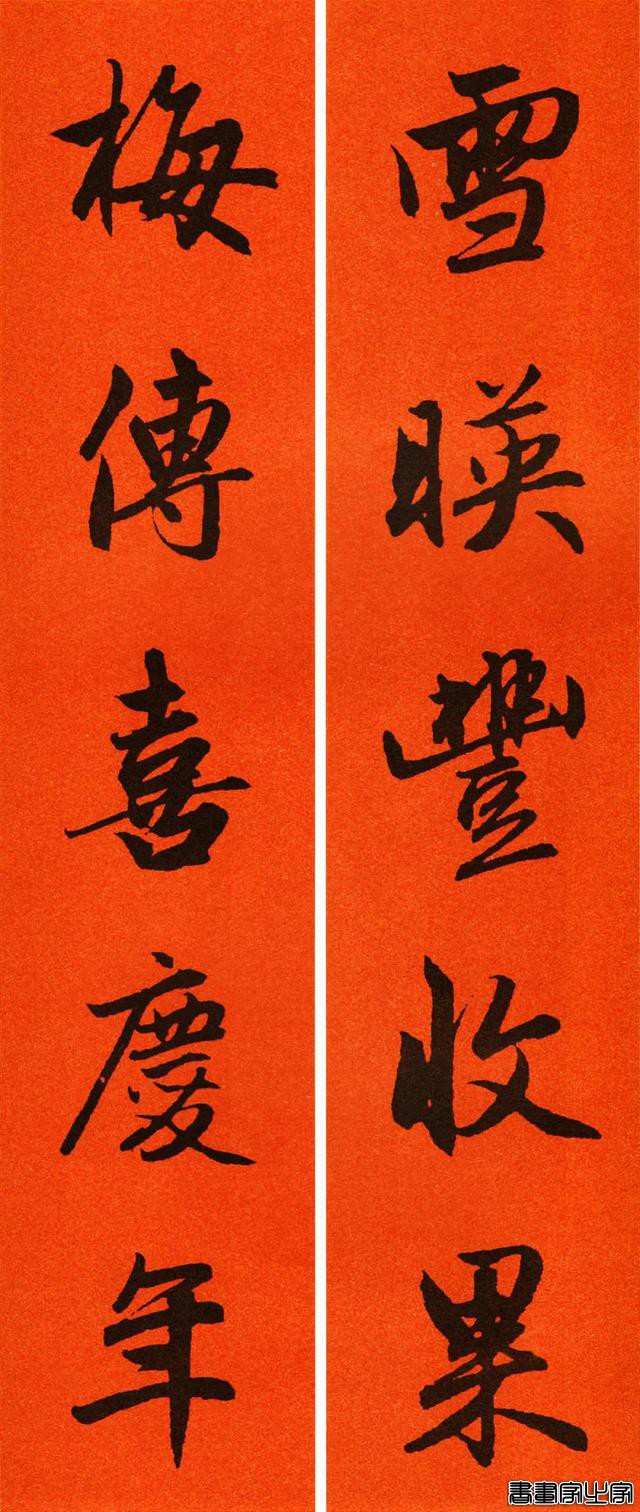 雪暎豐收果
梅傳喜慶年
書畫家之家